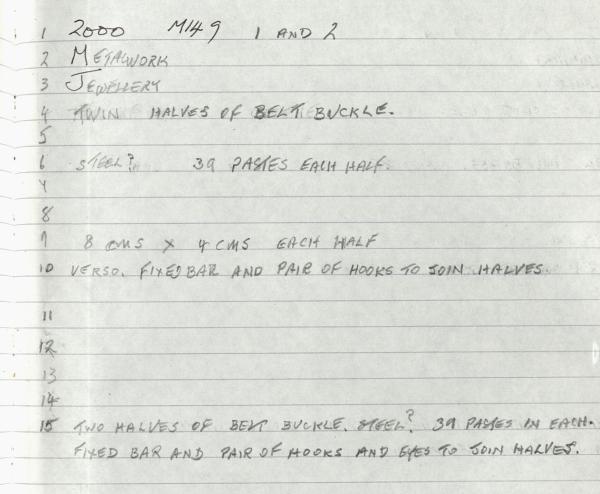 1 2000 M149 1 AND 2
2 METALWORK
3 JEWELLERY
4 TWIN HALVES OF BELT BUCKLE.
5
6 STEEL? 39 PASTES EACH HALF.
7
8
9 8 CMS X 4 CMS EACH HALF
10 VERSO. FIXED BAR AND PAIR OF HOOKS TO JOIN HALVES.
11
12
13
14
15 TWO HALVES OF BELT BUCKLE. STEEL? 39 PASTES IN EACH.
FIXED BAR AND PAIR OF HOOKS AND EYES TO JOIN HALVES.